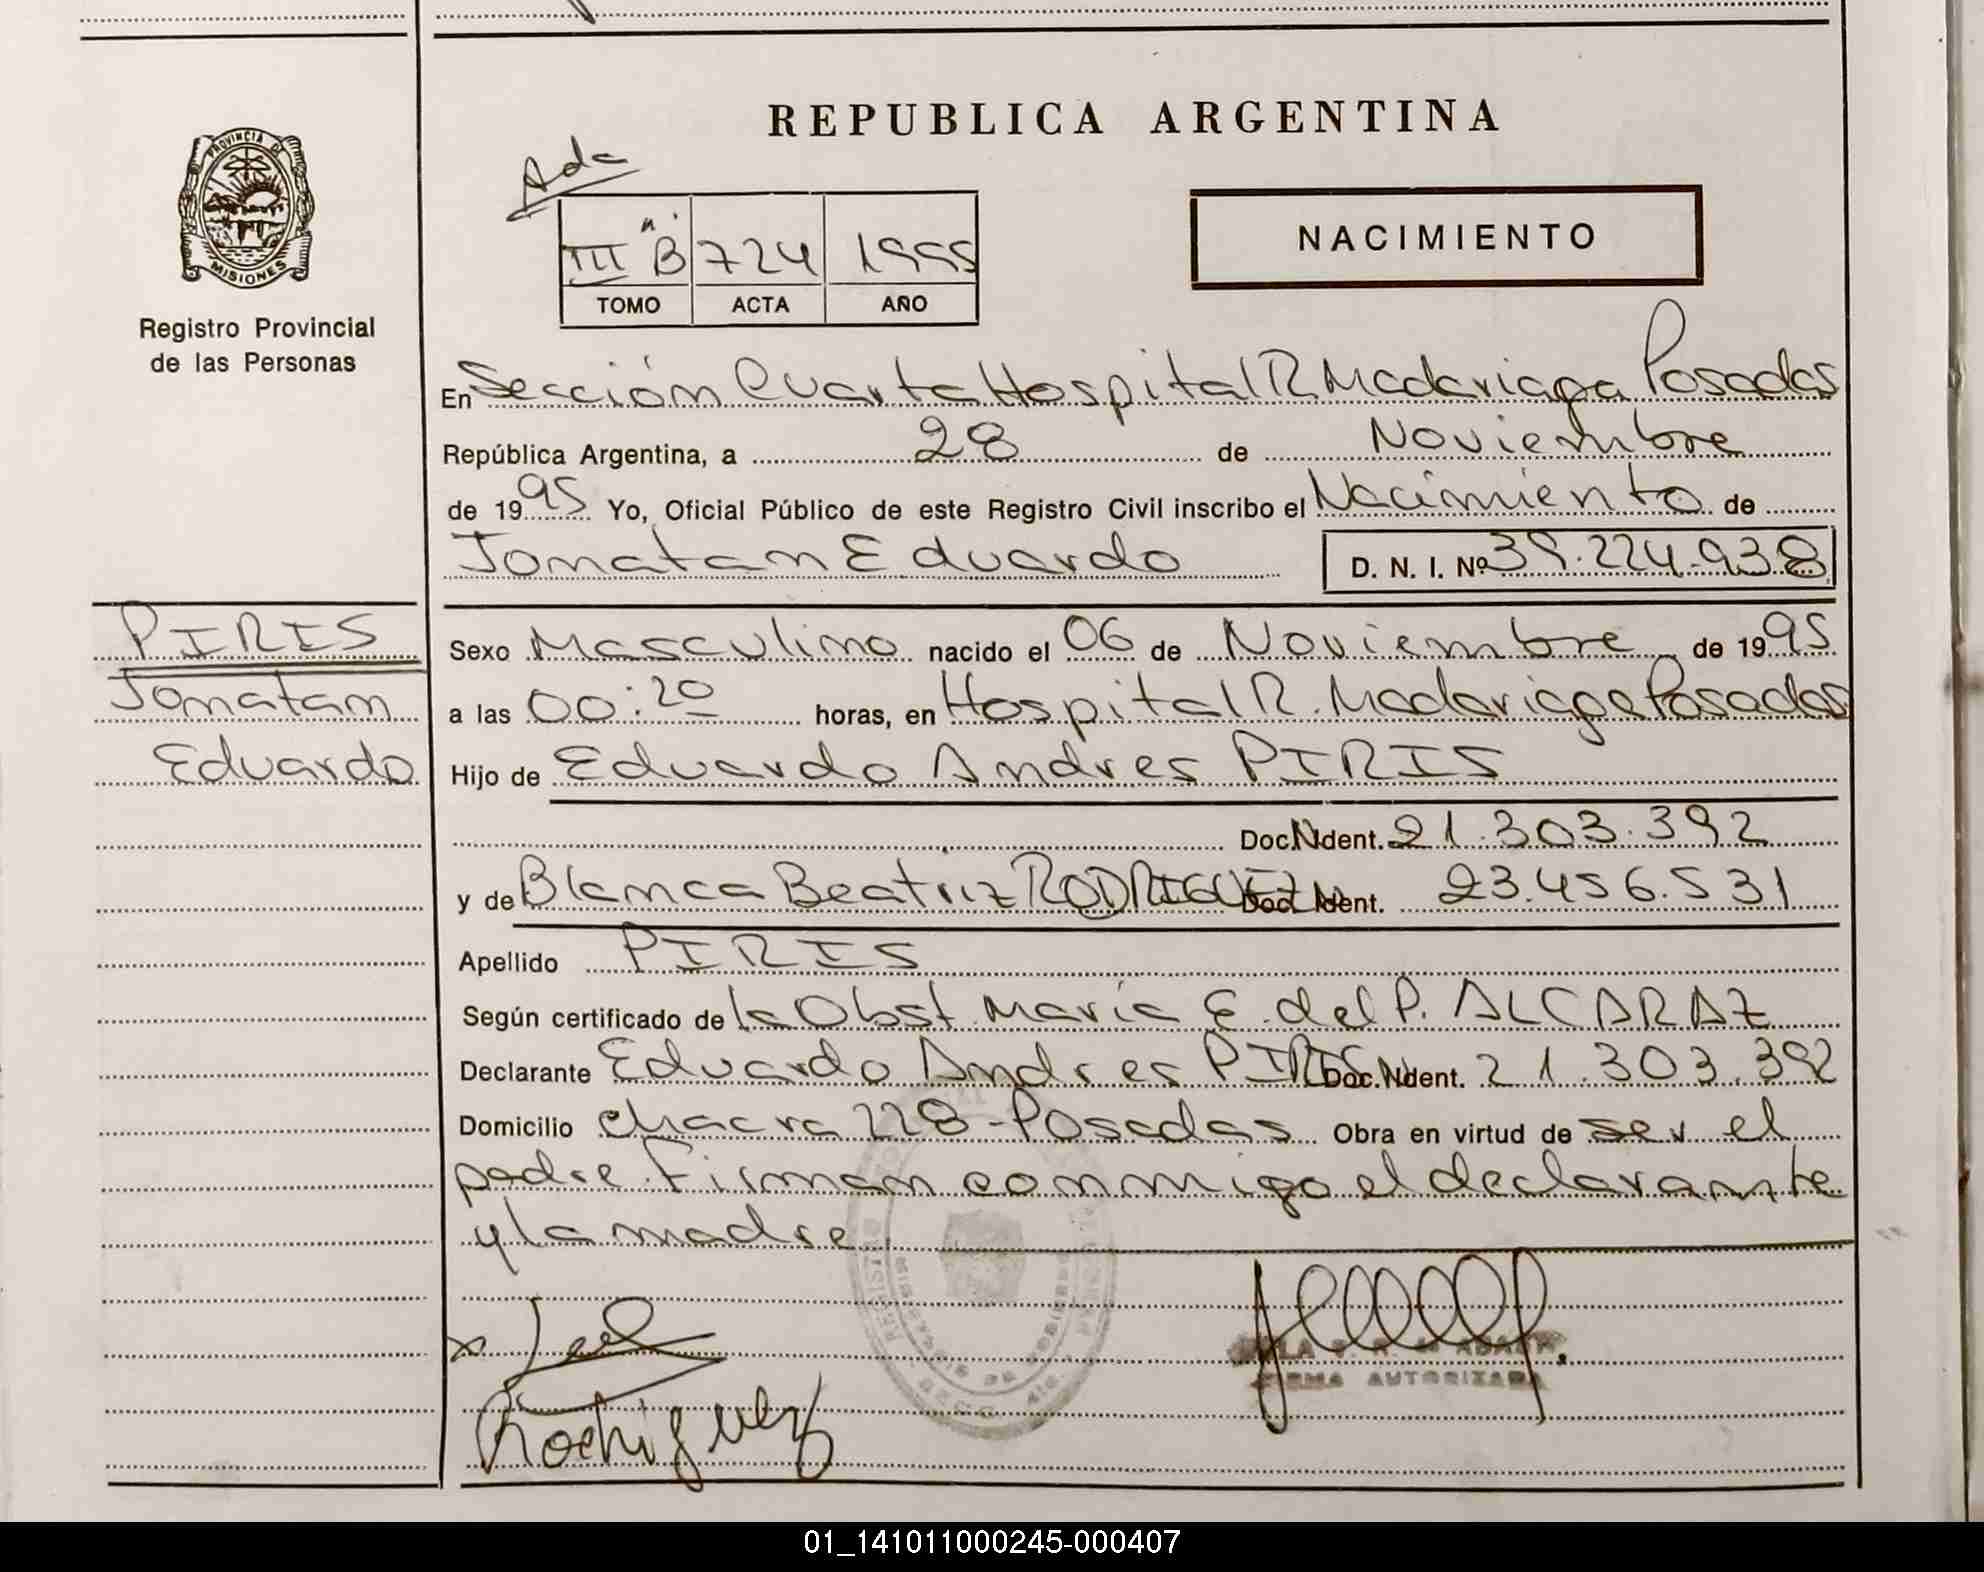 REPUBLICA ARGENTINA
PROVINCIA DE
MISIONES
Registro Provincial
de las Personas
Ada
III "B" 724 1995
TOMO ACTA AÑO
NACIMIENTO
En Sección Cuarta Hospital R Madariaga Posadas
República Argentina, a 28 de Noviembre
de 1995 Yo, Oficial Público de este Registro Civil inscribo el Nacimiento de
Jonatan Eduardo D. N. I. Nº 39.224.938
PIRIS
Jonatan
Eduardo
Sexo Masculino nacido el 06 de Noviembre de 1995
a las 00:20 horas, en Hospital R. Madariaga Posadas
Hijo de Eduardo Andres PIRIS
Doc.N Ident. 21.303.392
y de Blanca Beatriz RODRIGUEZ Doc. N Ident. 23.456.531
Apellido PIRIS
Según certificado de la Obst. María E. del P. ALCARAZ
Declarante Eduardo Andres PIRIS Doc.N Ident. 21.303.392
Domicilio chacra 228 - Posadas Obra en virtud de ser el
padre. Firman conmigo el declarante
y la madre
Rodriguez
FIRMA AUTORIZADA
01_141011000245-000407